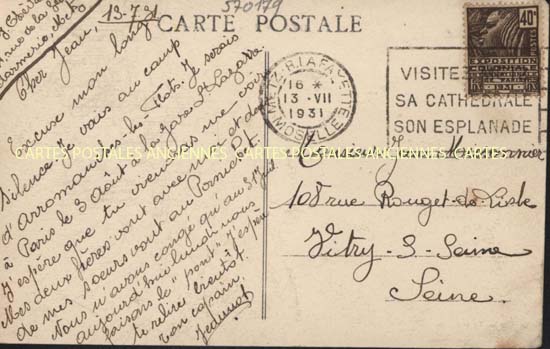 CARTE POSTALE
570179
13.7.31
Cher Jean,
Excuse mon long
silence. Je vais au camp
d'Arromanches-les-Flots. Je serais
à Paris le 3 Août à la gare St Lazare
J'espère que tu viendras me voir
Mes deux frères vont avec moi et deux
de mes soeurs vont au
Nous n'avons congé qu'au
aujourd'hui lundi nous
faisons le "pont". J'espère
te relire bientôt.
ton copain,
METZ R. LAFAYETTE
16 *
13 - VII
1931
MOSELLE
VISITEZ
SA CATHÉDRALE
SON ESPLANADE
40c
EXPOSITION
108 rue Rouget-de-Lisle
Vitry-s-Seine
Seine.
CARTES POSTALES ANCIENNES . COM CARTES POSTALES ANCIENNES . COM CARTES POSTALES ANCIENNES